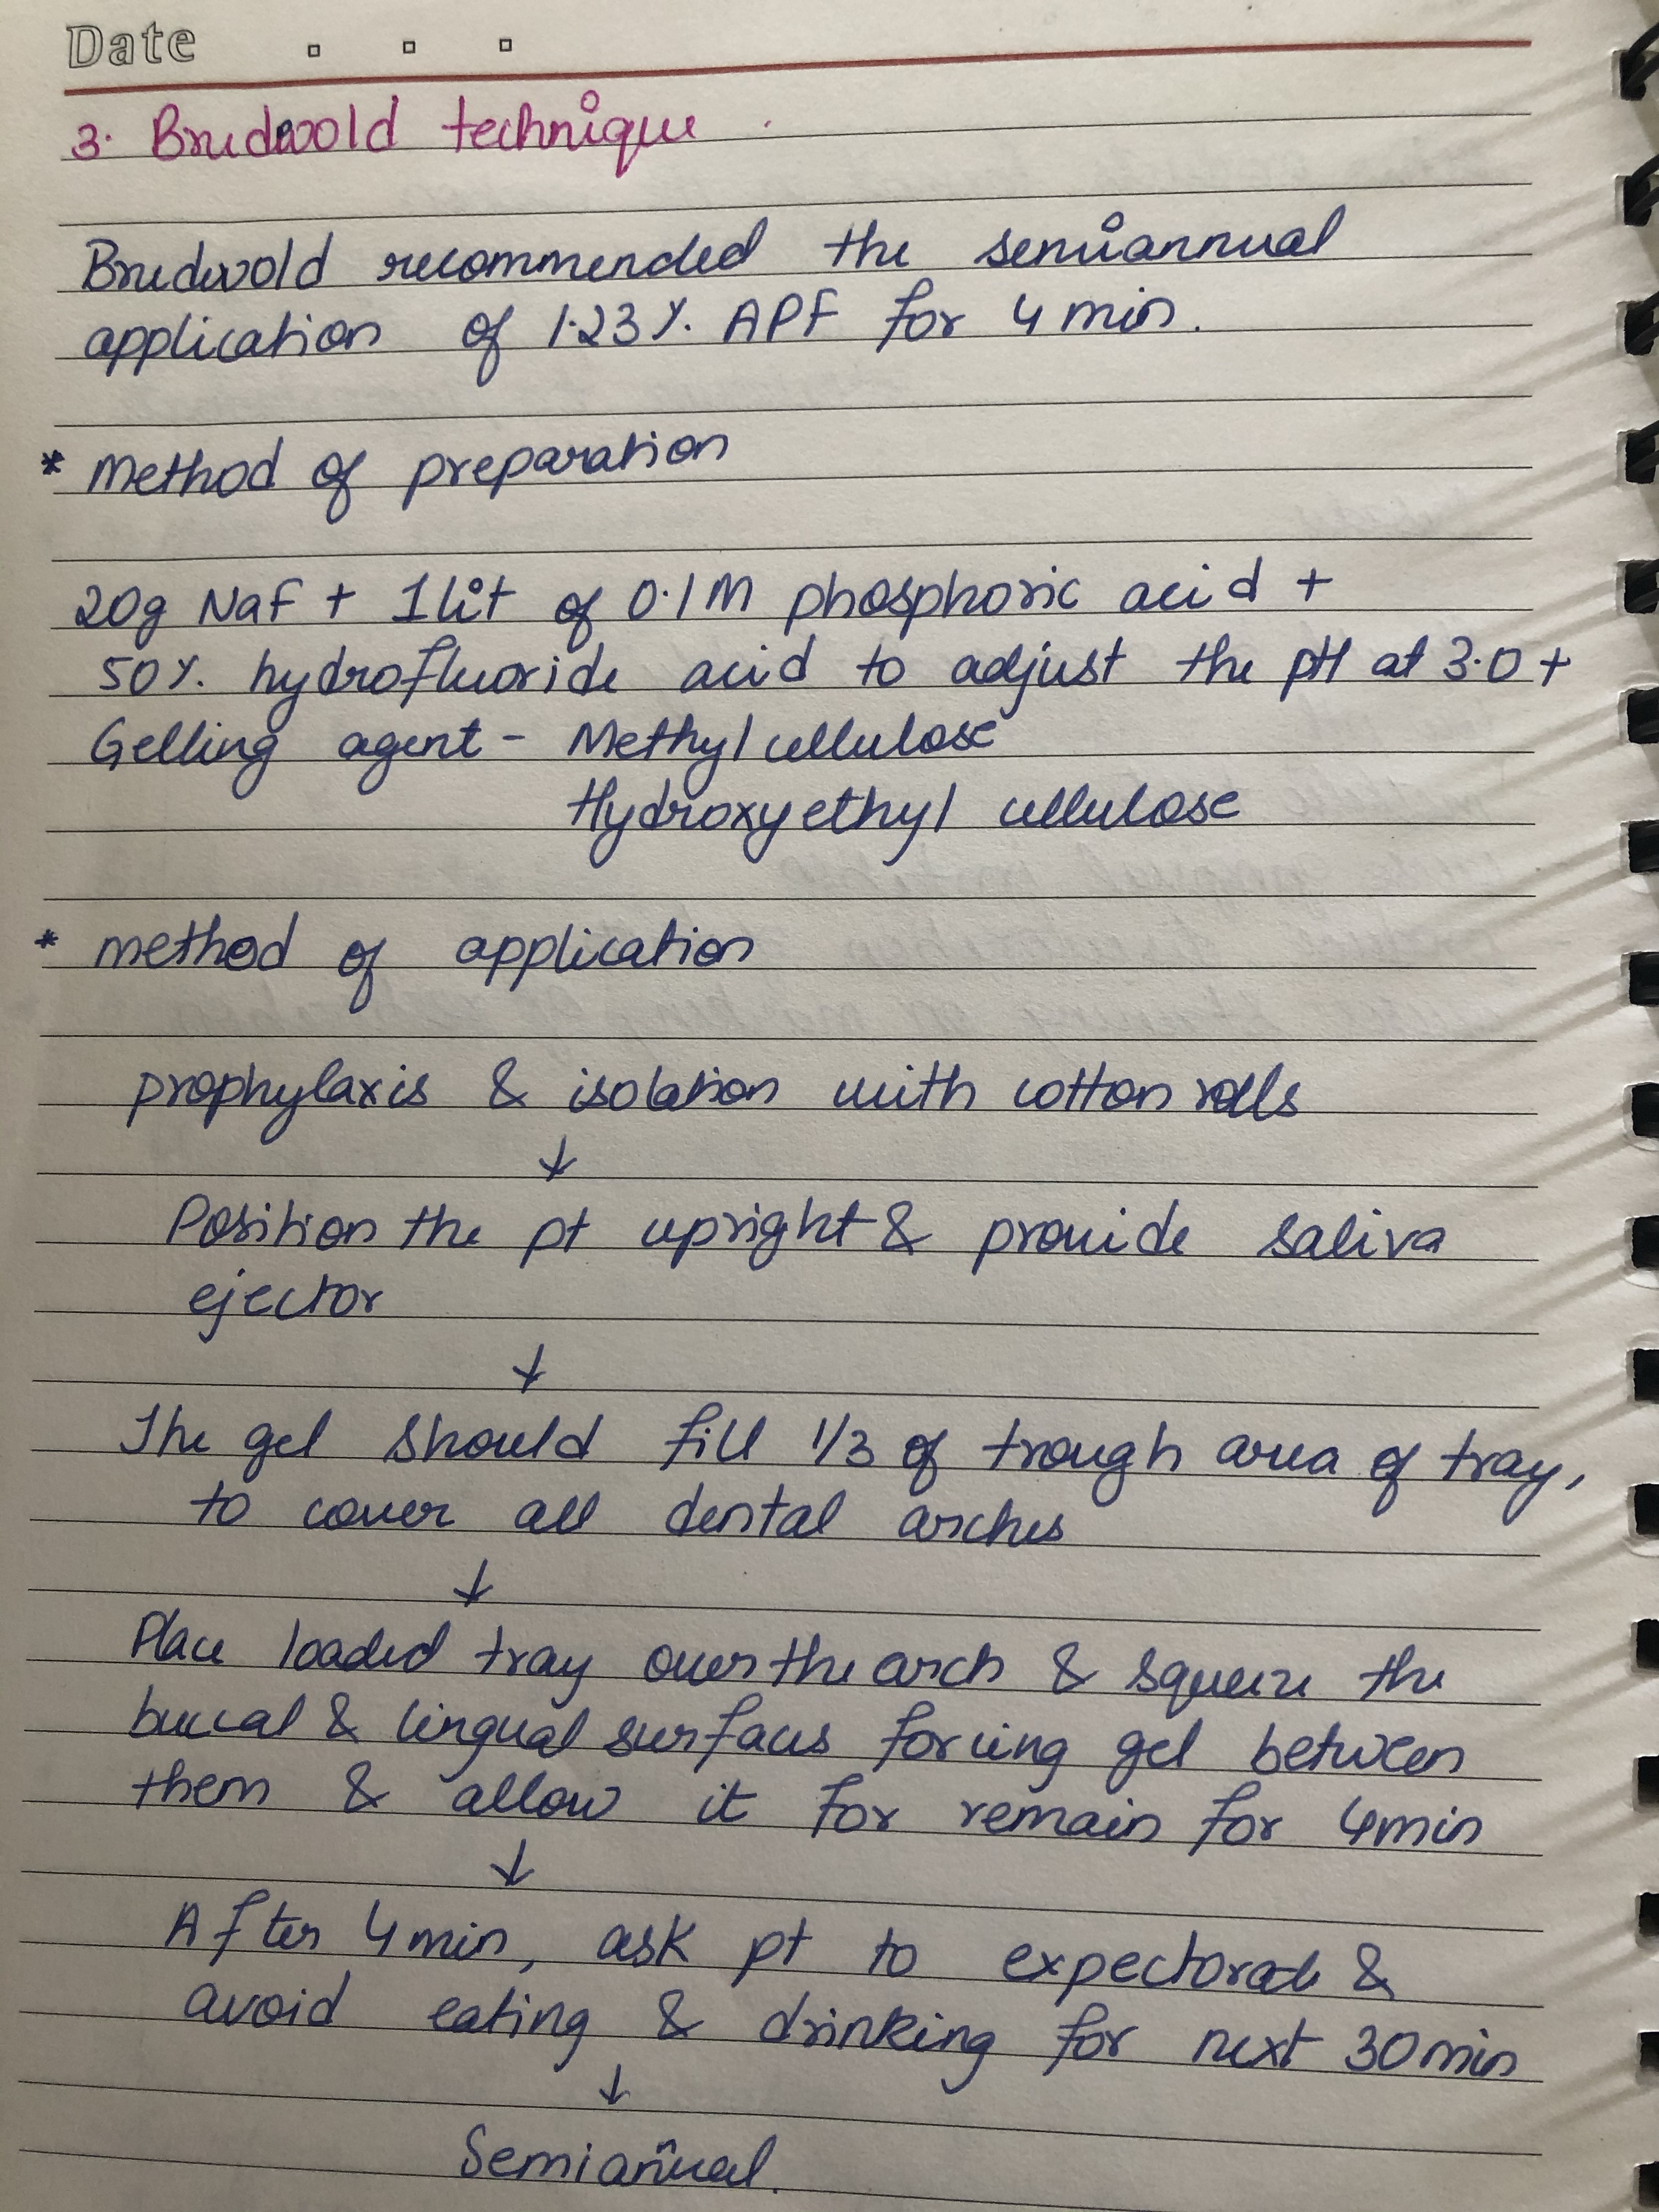 Date
3. Brudevold technique.
Brudevold recommended the semiannual
application of 1.23%. APF for 4 min.
* Method of preparation
20g NaF + 1 lit of 0.1M phosphoric acid +
50%. hydrofluoride acid to adjust the pH at 3.0 +
Gelling agent - Methyl cellulose
Hydroxyethyl cellulose
* method of application
prophylaxis & isolation with cotton rolls
↓
Position the pt upright & provide saliva
ejector
↓
The gel should fill 1/3 of trough area of tray,
to cover all dental arches
↓
Place loaded tray over the arch & squeeze the
buccal & lingual surfaces forcing gel between
them & allow it for remain for 4min
↓
After 4 min, ask pt to expectorate &
avoid eating & drinking for next 30 min
↓
Semiannual.